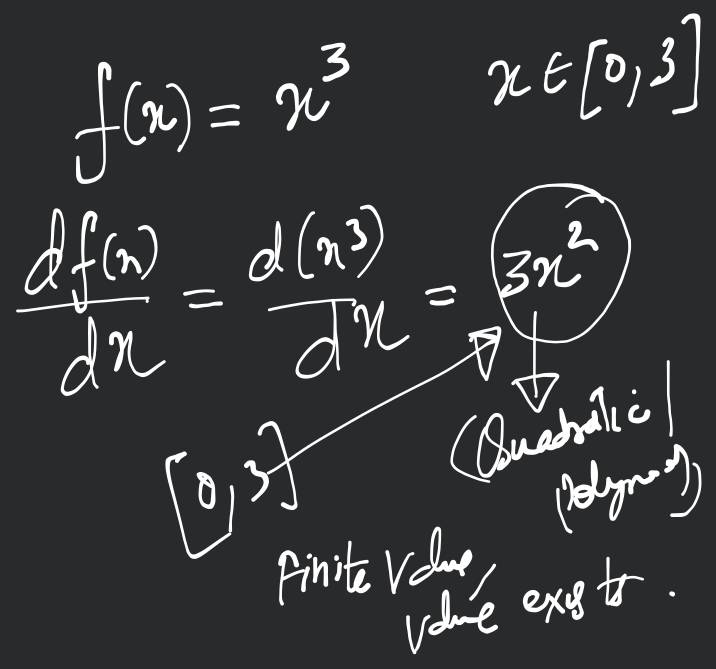 f(x) = x³ x ∈ [0,3]
df(x)/dx = d(x³)/dx = 3x²
(Quadratic/
[0,3]
finite value,
value exists.